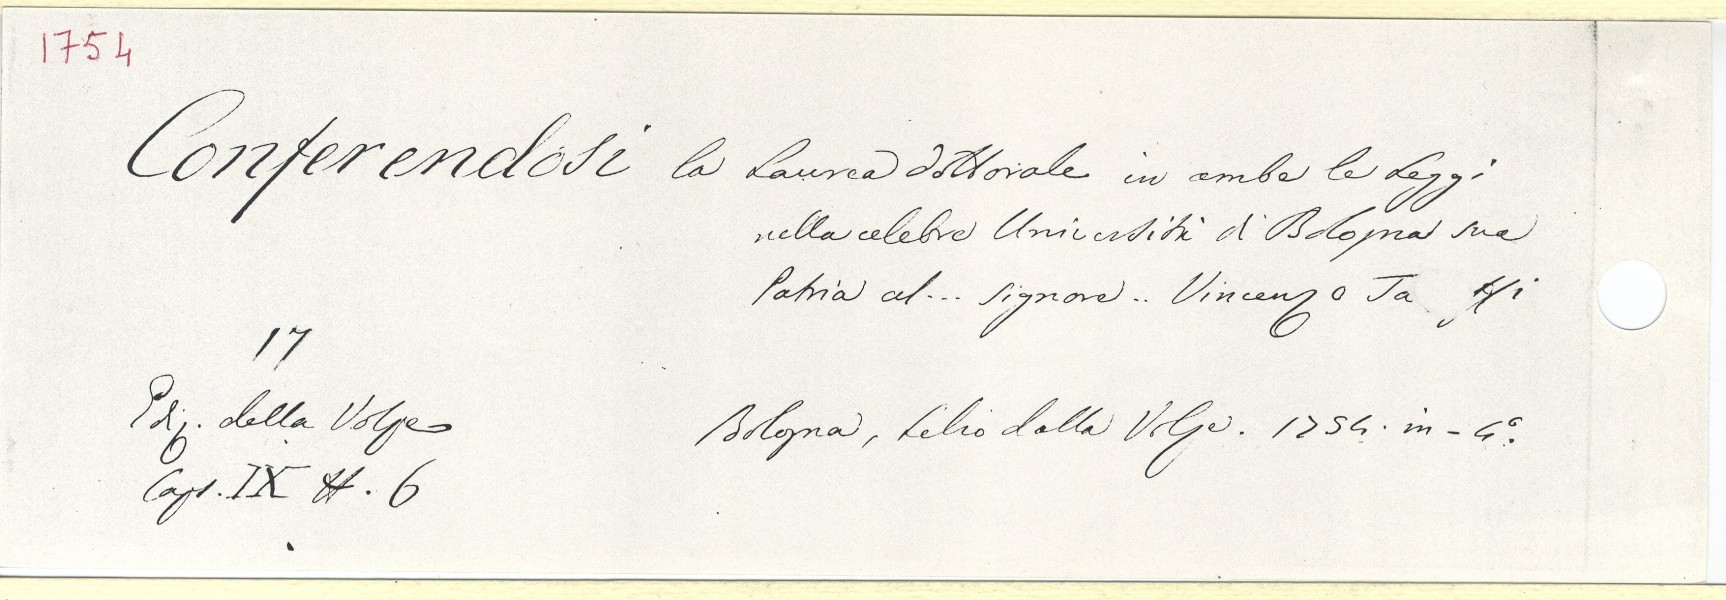 1754
Conferendosi la Laurea dottorale in ambe le Leggi
nella celebre Università di Bologna sua
Patria al... signore.. Vincenzo
17
Ediz. della Volpe
Bologna, Lelio dalla Volpe. 1754. in-4°.
Caps. IX # . 6